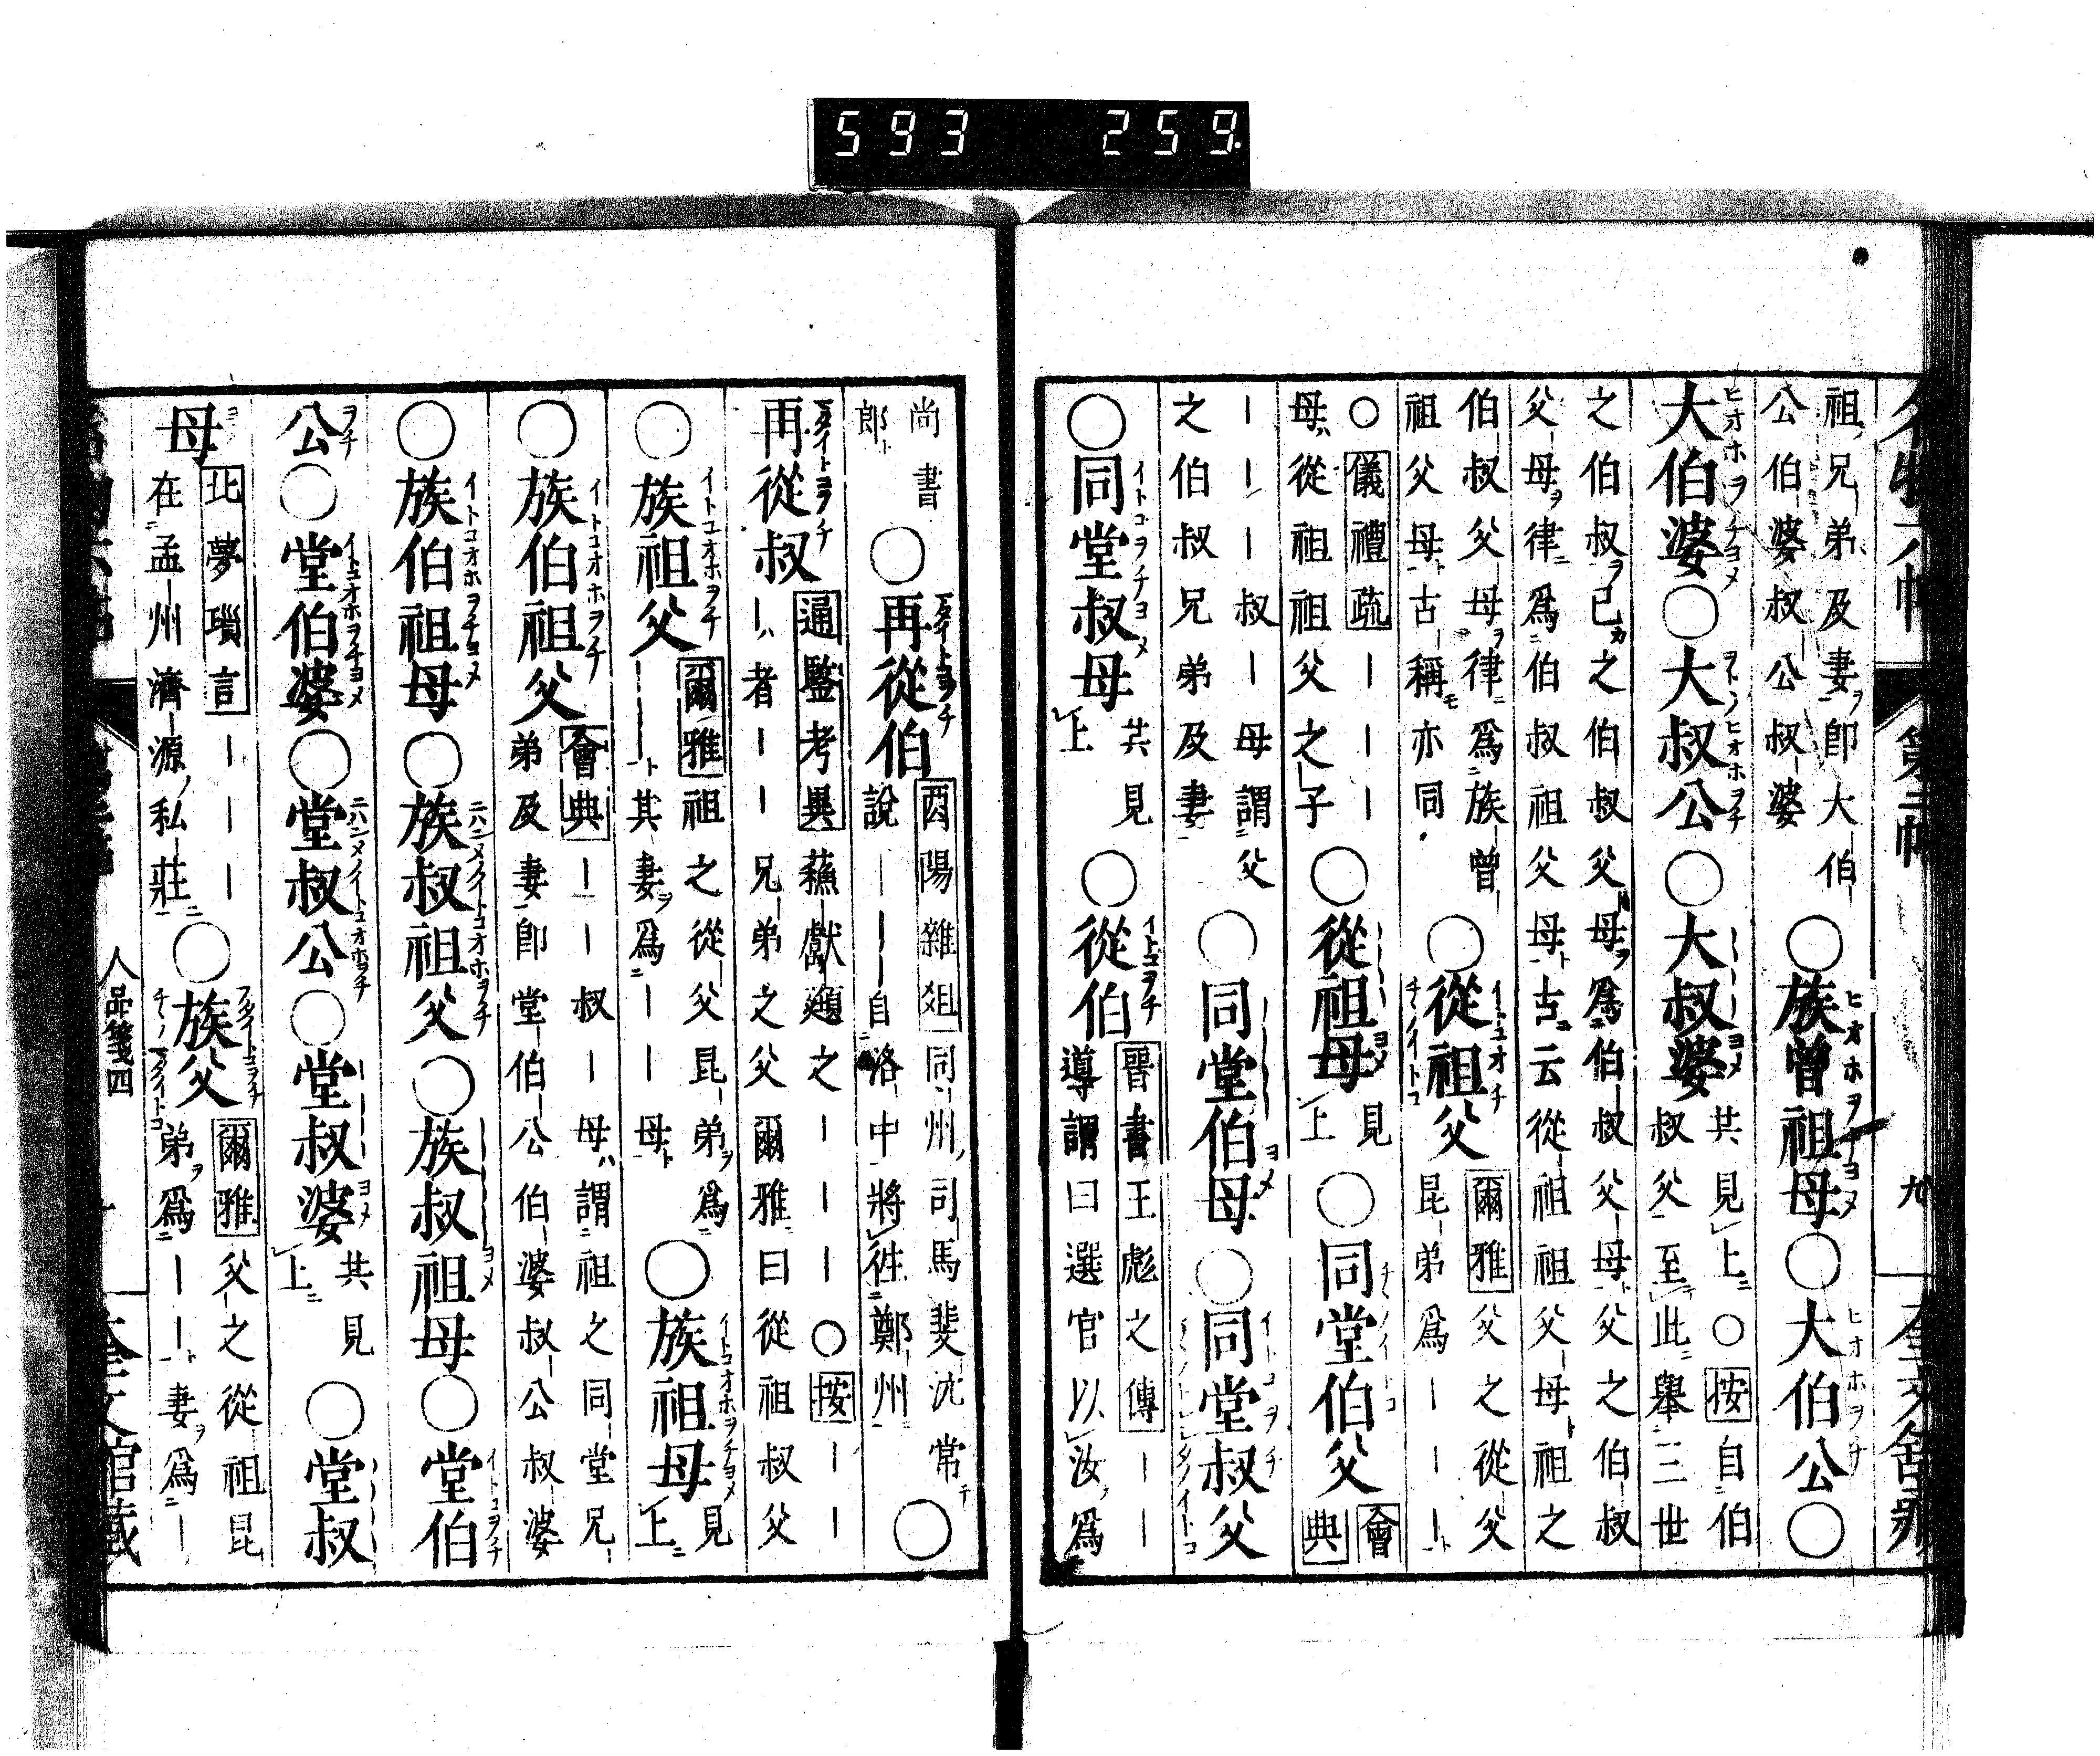 593 259
祖兄弟及妻即大伯
公伯婆叔公叔婆
○族曾祖母○大伯公○
大伯婆○大叔公○大叔婆
共見上○按自伯
叔父至此舉三世
之伯叔己之伯叔父母爲伯叔父母父之伯叔
父母律爲伯叔祖父母古云從祖祖父母祖之
伯叔父母律爲族曾
祖父母古稱亦同
○從祖父
爾雅父之從父
昆弟爲ーーー
○儀禮疏ーーー
母從祖祖父之子
○從祖母
見上
○同堂伯父
會典
ーーーー叔ー母謂父
之伯叔兄弟及妻
○同堂伯母○同堂叔父
○同堂叔母
共見上
○從伯
晉書王彪之傳ーー
導謂曰選官以汝爲
尚書郎
○再從伯
酉陽雜俎同州司馬裴沈常
說ーーー自洛中將徃鄭州
○
再從叔
通鑑考異蘇獻頲之ーーー○按ーー
ー者ーー兄弟之父爾雅曰從祖叔父
○族祖父
爾雅祖之從父昆弟爲
ーーー其妻爲ーー母
○族祖母
見上
○族伯祖父
會典ーー叔ー母謂祖之同堂兄
弟及妻即堂伯公伯婆叔公叔婆
○族伯祖母○族叔祖父○族叔祖母○堂伯
公○堂伯婆○堂叔公○堂叔婆
共見上
○堂叔
母
北夢瑣言ーーー
在孟州濟源私莊
○族父
爾雅父之從祖昆
弟爲ーー妻爲ー
人品箋四
第二帖
九